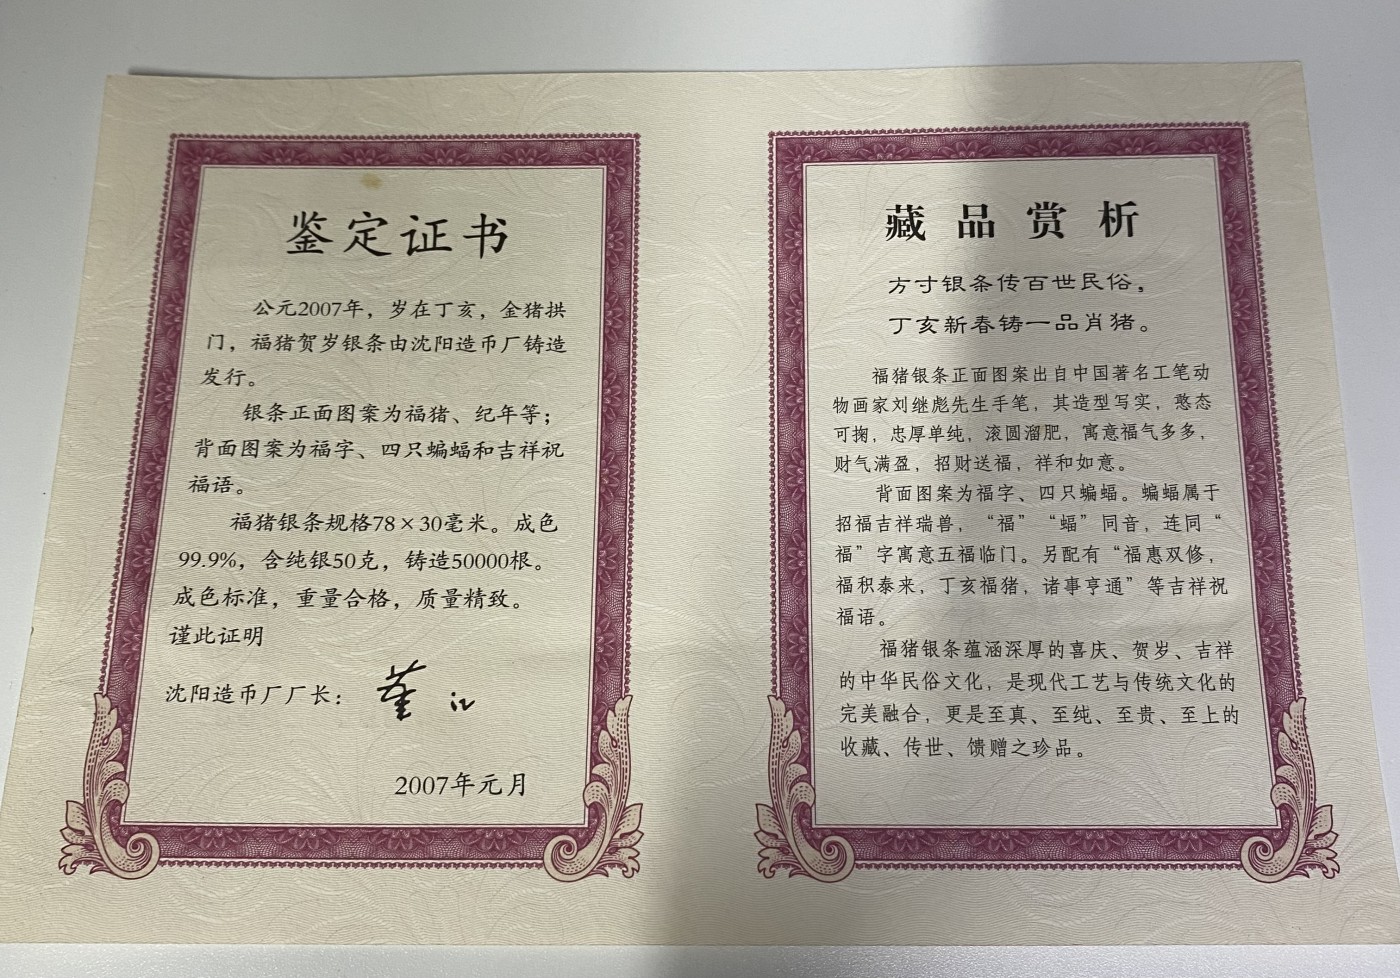 鉴定证书
公元2007年，岁在丁亥，金猪拱
门，福猪贺岁银条由沈阳造币厂铸造
发行。
银条正面图案为福猪、纪年等；
背面图案为福字、四只蝙蝠和吉祥祝
福语。
福猪银条规格78×30毫米。成色
99.9%，含纯银50克，铸造50000根。
成色标准，重量合格，质量精致。
谨此证明
沈阳造币厂厂长：
2007年元月
藏品赏析
方寸银条传百世民俗，
丁亥新春铸一品肖猪。
福猪银条正面图案出自中国著名工笔动
物画家刘继彪先生手笔，其造型写实，憨态
可掬，忠厚单纯，滚圆溜肥，寓意福气多多，
财气满盈，招财送福，祥和如意。
背面图案为福字、四只蝙蝠。蝙蝠属于
招福吉祥瑞兽，“福”“蝠”同音，连同“
福”字寓意五福临门。另配有“福惠双修，
福积泰来，丁亥福猪，诸事亨通”等吉祥祝
福语。
福猪银条蕴涵深厚的喜庆、贺岁、吉祥
的中华民俗文化，是现代工艺与传统文化的
完美融合，更是至真、至纯、至贵、至上的
收藏、传世、馈赠之珍品。